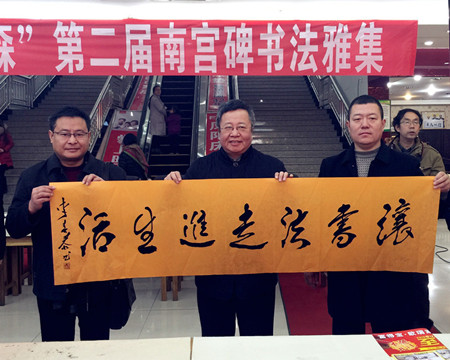 ”第二届南宫碑书法雅集
讓書法走進生活